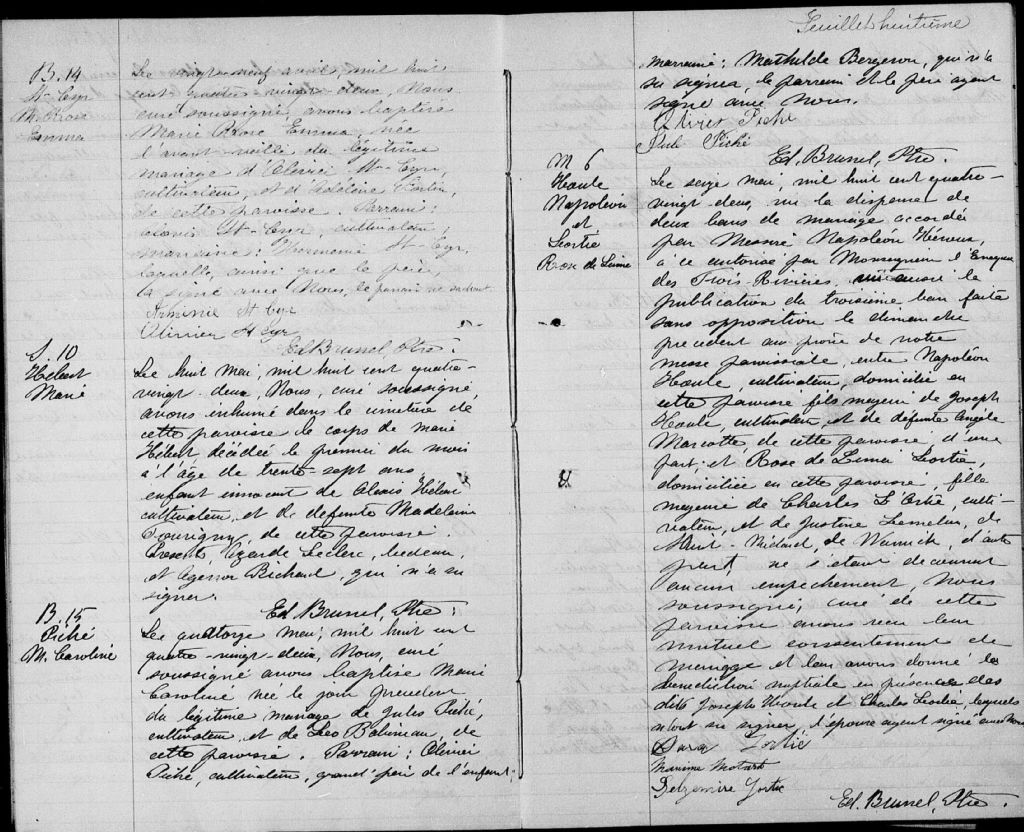 B. 14
St-Cyr
M. Rose
Emma
Le vingt-neuf avril, mil huit
cent quatre-vingt-deux, Nous,
curé soussigné, avons baptisé
Marie Rose Emma, née
l'avant-veille du légitime
mariage d'Olivier St-Cyr,
cultivateur, et d'
de cette paroisse. Parrain:
St-Cyr, cultivateur;
marraine: St-Cyr,
laquelle, ainsi que le père,
a signé avec Nous, le parrain ne sachant
St Cyr
Olivier St Cyr
Ed Brunel, Ptre.
S. 10
Hébert
Marie
Le huit mai, mil huit cent quatre-
vingt-deux, Nous, curé soussigné,
avons inhumé dans le cimetière de
cette paroisse le corps de Marie
Hébert décédée le premier du mois
à l'âge de trente-sept ans
enfant innocent de Alexis Hébert
cultivateur, et de défunte Madeleine
Tourigny, de cette paroisse.
Présents, Leclerc, bedeau,
et Agenor Richard, qui n'a su
signer.
Ed Brunel, Ptre.
B. 15
Piché
M. Caroline
Le quatorze mai, mil huit cent
quatre-vingt-deux, Nous, curé
soussigné avons baptisé Marie
Caroline née le jour précédent
du légitime mariage de Jules Piché,
cultivateur, et de de
cette paroisse. Parrain: Olivier
Piché, cultivateur, grand'père de l'enfant;
Feuillet huitième
marraine: Mathilde Bergeron, qui n'a
su signer, le parrain et le père ayant
signé avec Nous.
Olivier Piché
Piché
Ed. Brunel, Ptre.
M 6
Houle
Napoléon
et
Lortie
Rose de Lima
Le seize mai, mil huit cent quatre-
vingt deux, vu la dispense de
deux bans de mariage accordée
par Messire Napoléon Héroux,
à ce autorisé par Monseigneur l'Evêque
des Trois-Rivières, la
publication du troisième ban faite
sans opposition le dimanche
précédent au prône de notre
messe paroissiale, entre Napoléon
Houle, cultivateur, domicilié en
cette paroisse fils majeur de Joseph
Houle, cultivateur, et de défunte Angèle
Marcotte, de cette paroisse d'une
part; et Rose de Lima Lortie,
domiciliée en cette paroisse, fille
majeure de Charles L'Ortie, culti-
vateur, et de Justine Lemelin, de
Saint-Médard, de Warwick, d'autre
part ne s'étant découvert
aucun empêchement, Nous
soussigné, curé de cette
paroisse avons reçu leur
mutuel consentement de
mariage et leur avons donné la
bénédiction nuptiale en présence des
dits Joseph Houle et Charles Lortie, lesquels
n'ont su signer, l'épouse ayant signé avec Nous
Sara Lortie
Maxime Morart
Lortie
Ed. Brunel, Ptre.